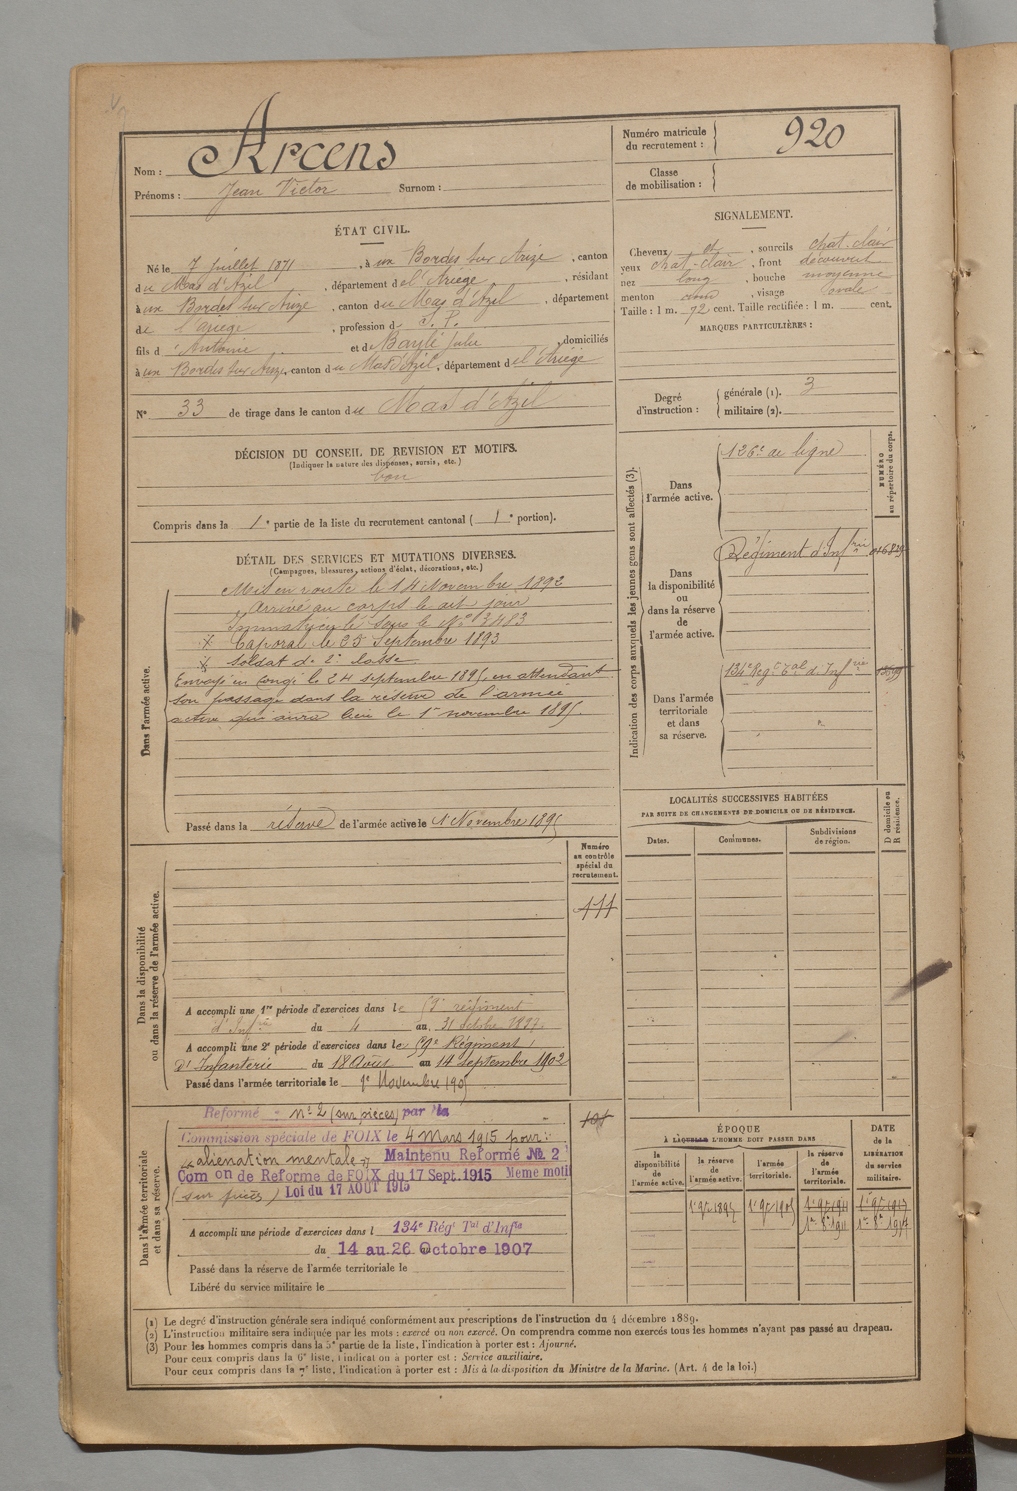 Nom : Arcens
Prénoms : Jean Victor Surnom :
Numéro matricule du recrutement : 920
Classe de mobilisation :
ÉTAT CIVIL.
Né le 7 juillet 1871, à ux Bordes sur Arize, canton
du Mas d'Azil, département de l'Ariège, résidant
à ux Bordes sur Arize, canton du Mas d'Azil, département
de l'ariège, profession de S. P.
fils d'Antoine et de Baylé Julie, domiciliés
à ux Bordes sur Arize, canton du Mas d'Azil, département de l'Ariège
N° 33 de tirage dans le canton du Mas d'Azil
SIGNALEMENT.
Cheveux et, sourcils chat-clair
yeux chat-clair, front découvert
nez long, bouche moyenne
menton rond, visage ovale
Taille : 1 m. 72 cent. Taille rectifiée : 1 m. cent.
MARQUES PARTICULIÈRES :
Degré d'instruction : générale (1). 3
militaire (2).
DÉCISION DU CONSEIL DE REVISION ET MOTIFS.
(Indiquer la nature des dispenses, sursis, etc.)
bon
Compris dans la 1e partie de la liste du recrutement cantonal (1e portion).
DÉTAIL DES SERVICES ET MUTATIONS DIVERSES.
(Campagnes, blessures, actions d'éclat, décorations, etc.)
Dans l'armée active.
Mis en route le 14 Novembre 1892
Arrivé au corps le dit jour
Immatriculé sous le N° 3483
Caporal le 25 Septembre 1893
Soldat de 2e classe
Envoyé en congé le 24 septembre 1895, en attendant
son passage dans la réserve de l'armée
active qui aura lieu le 1er novembre 1895.
Passé dans la réserve de l'armée active le 1 Novembre 1895
Indication des corps auxquels les jeunes gens sont affectés (3).
NUMÉRO au répertoire du corps.
Dans l'armée active.
126e de ligne
Dans la disponibilité ou dans la réserve de l'armée active.
Régiment d'Infrie
Dans l'armée territoriale et dans sa réserve.
134e Regt Tal d'Infrie
LOCALITÉS SUCCESSIVES HABITÉES
PAR SUITE DE CHANGEMENTS DE DOMICILE OU DE RÉSIDENCE.
Dates. Communes. Subdivisions de région. D domicile ou R résidence.
Dans la disponibilité ou dans la réserve de l'armée active.
Numéro au contrôle spécial du recrutement.
111
A accompli une 1re période d'exercices dans le 59e régiment
d'Infrie du 4 au 31 octobre 1897.
A accompli une 2e période d'exercices dans le 59e Régiment
d'Infanterie du 18 Août au 14 septembre 1902
Passé dans l'armée territoriale le 1er Novembre 1905
Dans l'armée territoriale et dans sa réserve.
Reformé n° 2 (sur pièces) par la
Commission spéciale de FOIX le 4 Mars 1915 pour :
« alienation mentale » Maintenu Reformé No. 2
Com on de Reforme de FOIX du 17 Sept. 1915 Meme motif
(sur pièces) Loi du 17 AOUT 1915
A accompli une période d'exercices dans l 134e Régt Tal d'Infie
du 14 au 26 Octobre 1907
Passé dans la réserve de l'armée territoriale le
Libéré du service militaire le
ÉPOQUE
À LAQUELLE L'HOMME DOIT PASSER DANS
la disponibilité de l'armée active. la réserve de l'armée active. l'armée territoriale. la réserve de l'armée territoriale.
DATE de la LIBÉRATION du service militaire.
1er 9bre 1895 1er 9bre 1905 1er 9bre 1911 1er 9bre 1917
1er 8bre 1911 1er 8bre 1917
(1) Le degré d'instruction générale sera indiqué conformément aux prescriptions de l'instruction du 4 décembre 1889.
(2) L'instruction militaire sera indiquée par les mots : exercé ou non exercé. On comprendra comme non exercés tous les hommes n'ayant pas passé au drapeau.
(3) Pour les hommes compris dans la 5e partie de la liste, l'indication à porter est : Ajourné.
Pour ceux compris dans la 6e liste, l'indication à porter est : Service auxiliaire.
Pour ceux compris dans la 7e liste, l'indication à porter est : Mis à la disposition du Ministre de la Marine. (Art. 4 de la loi.)